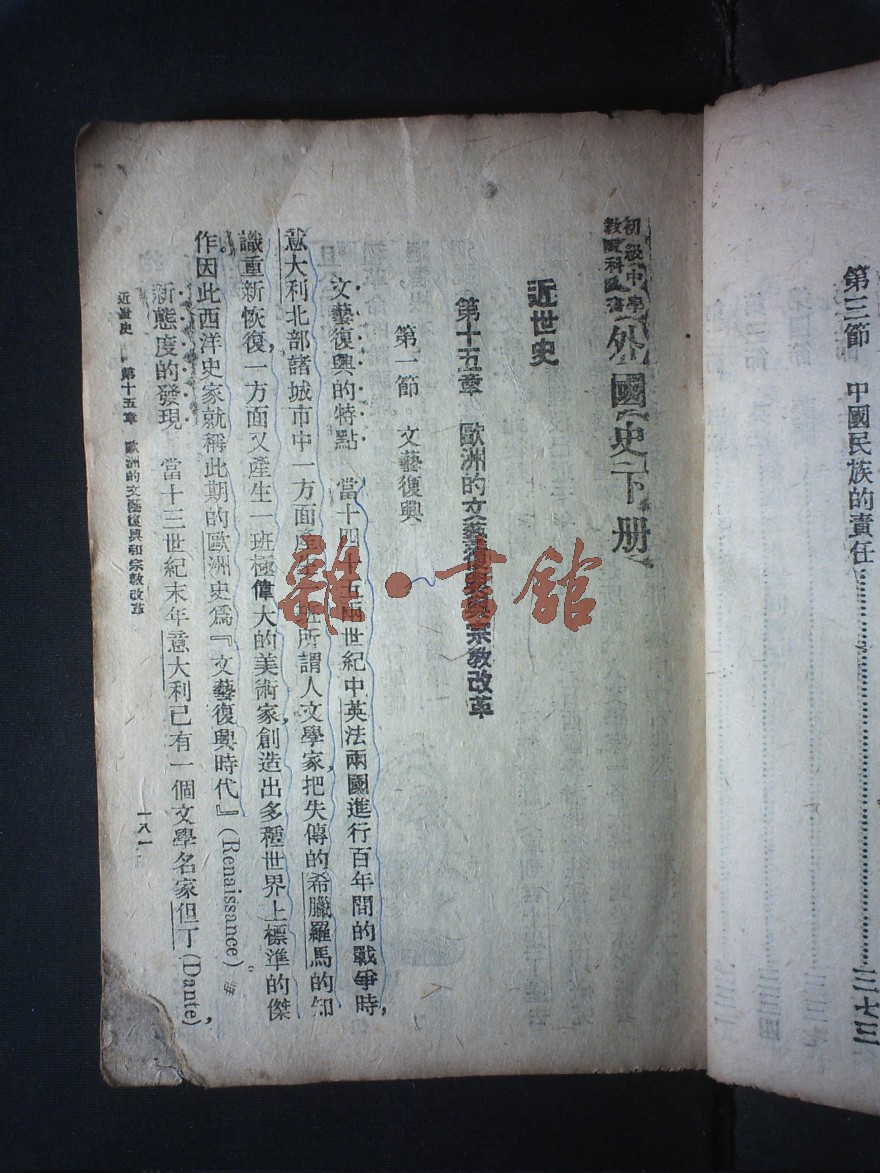 第三節　中國民族的責任……三七三
初級中學
教科書
外國史　下册
近世史
第十五章　歐洲的文藝復興與宗教改革
第一節　文藝復興
文藝復興的特點　當十四十五兩世紀中英法兩國進行百年間的戰爭時，
意大利北部諸城市中一方面產生一班所謂人文學家，把失傳的希臘羅馬的知
識重新恢復一方面又產生一班極偉大的美術家，創造出多種世界上標準的傑
作。因此西洋史家就稱此期的歐洲史爲『文藝復興時代』（Renaissance）。
新態度的發現　當十三世紀末年意大利已有一個文學名家但丁（Dante），
近世史　第十五章　歐洲的文藝復興和宗教改革
一八一
雜·書館